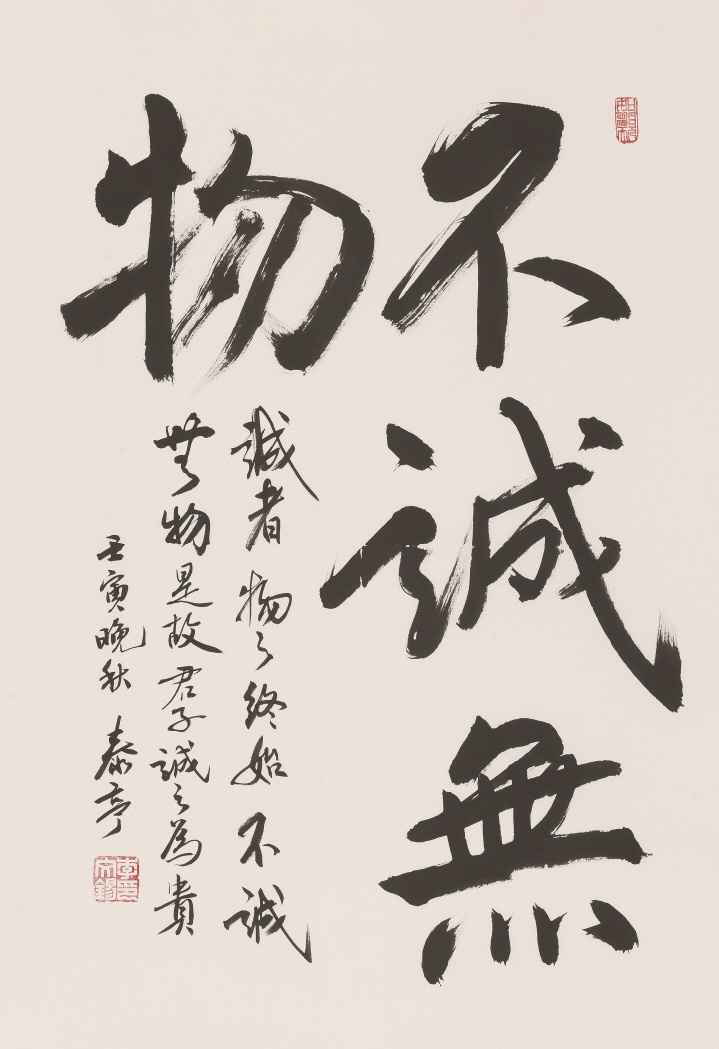 不誠無
物
誠者物之終始不誠
無物是故君子誠之為貴
壬寅晚秋 泰亭